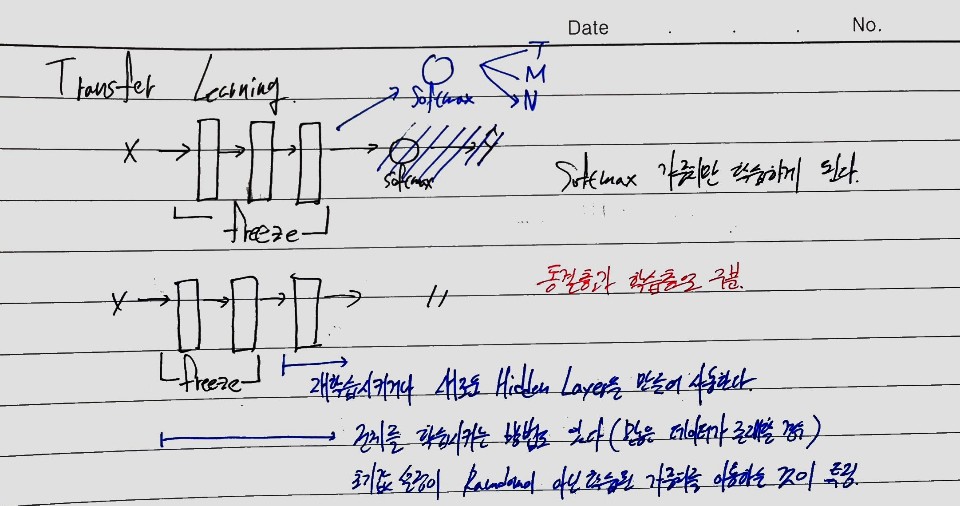 Date . . . No.
Transfer Learning.
Softmax T M N
X Softmax Y
Softmax 가중치만 학습하게 된다.
freeze
X 〃 동결층과 학습층으로 구분.
freeze
재학습시키거나 새로운 Hidden Layer을 만들어 사용한다.
전체를 학습시키는 방법도 있다 (많은 데이터가 존재할 경우)
초기값 설정이 Random이 아닌 학습된 가중치를 이용하는 것이 특징.